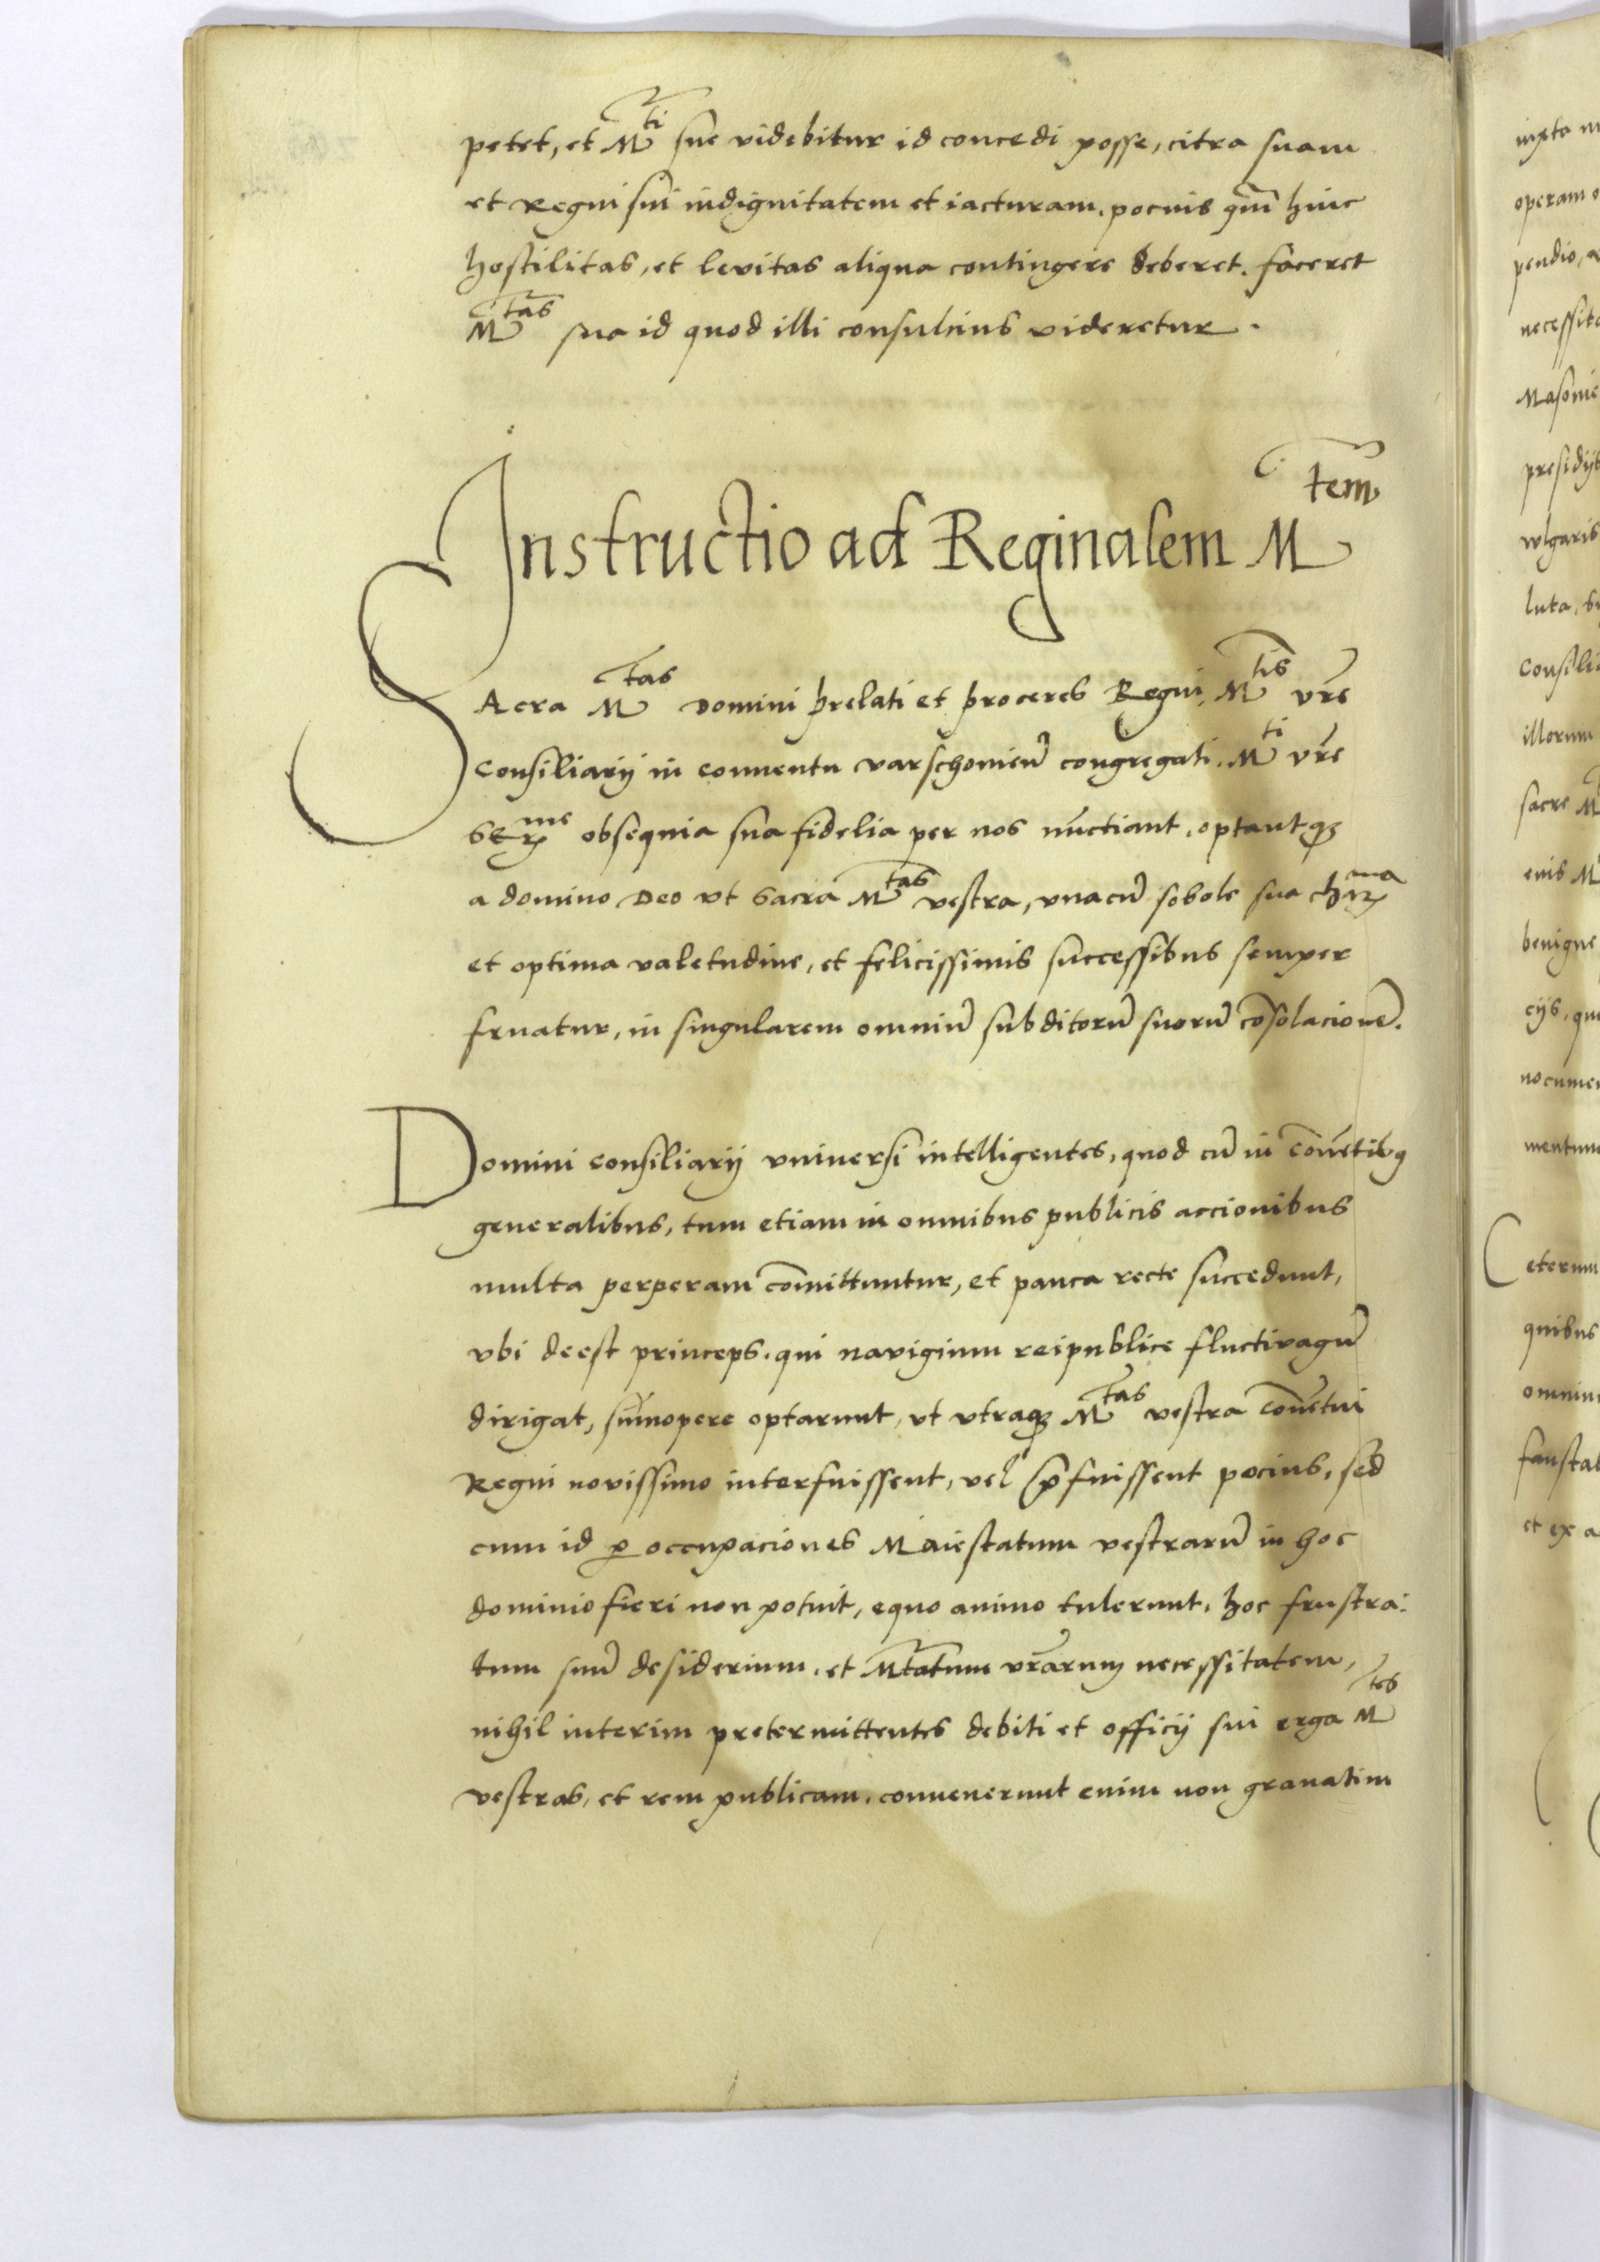 petet, et M^ti sue videbitur id concedi posse, citra suam
et Regni sui indignitatem et iacturam, pocius hinc
hostilitas, et levitas aliqua contingere deberet. faceret
M^tas sua id quod illi consulcius videretur.
Instructio ad Reginalem M^tem
SAcra M^tas Domini prelati et proceres Regni, M^tis vr̃e
Consiliarij in conuentu varschouien̄ congregati. M^ti vr̃e
Ser^me obsequia sua fidelia per nos nūctiant, optantqꝫ
a domino Deo vt Sacra M^tas vestra, vnacū sobole sua
et optima valetudine, et felicissimis successibus semper
fruatur, in singularem omniū subditorū suorū cōsolacionē.
Domini consiliarij vniuersi intelligentes, quod cū in cōuētibꝯ
generalibus, tum etiam in omnibus publicis accionibus
multa perperam cōmittuntur, et pauca recte succedunt,
vbi deest princeps, qui navigium reipublice fluctivagū
dirigat, sūmopere optarunt, vt vtraqꝫ M^tas vestra cōuētui
Regni novissimo interfuissent, vel p̄fuissent pocius, sed
cum id ꝑ occupaciones Maiestatum vestrarū in hoc
dominio fieri non potuit, equo animo tulerunt, hoc frustra-
tum suū desiderium, et Mt̃atum vr̃arum necessitatem,
nihil interim pretermittentes debiti et officij sui erga M^tes
vestras, et rem publicam, conuenerunt enim non grauatim
iuxta
operam
pendio,
presidijs
wlgaris
luta,
illorum
sacre
benigne
Ceterum
quibus
et ex